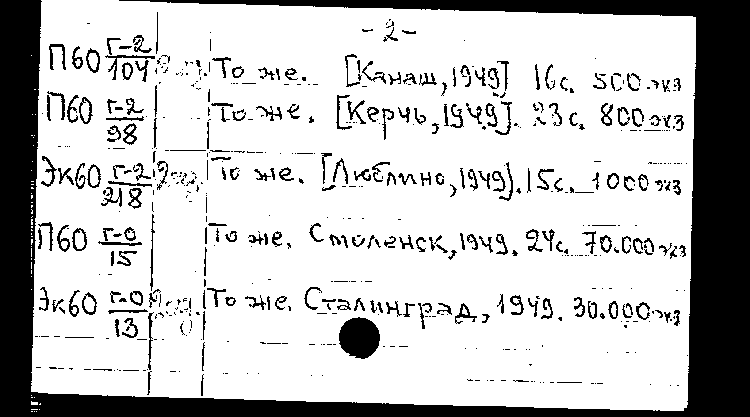 - 2 -
П60 Г-2/104 То же. [Канаш, 1949] 16 с. 500 экз
П60 Г-2/98 То же. [Керчь, 1949]. 23 с. 800 экз
Эк60 Г-2/218 2 экз. То же. [Люблино, 1949]. 15 с. 1000 экз
П60 Г-0/15 То же. Смоленск, 1949. 24 с. 70.000 экз
Эк60 Г-0/13 То же. Сталинград, 1949. 30.000 экз